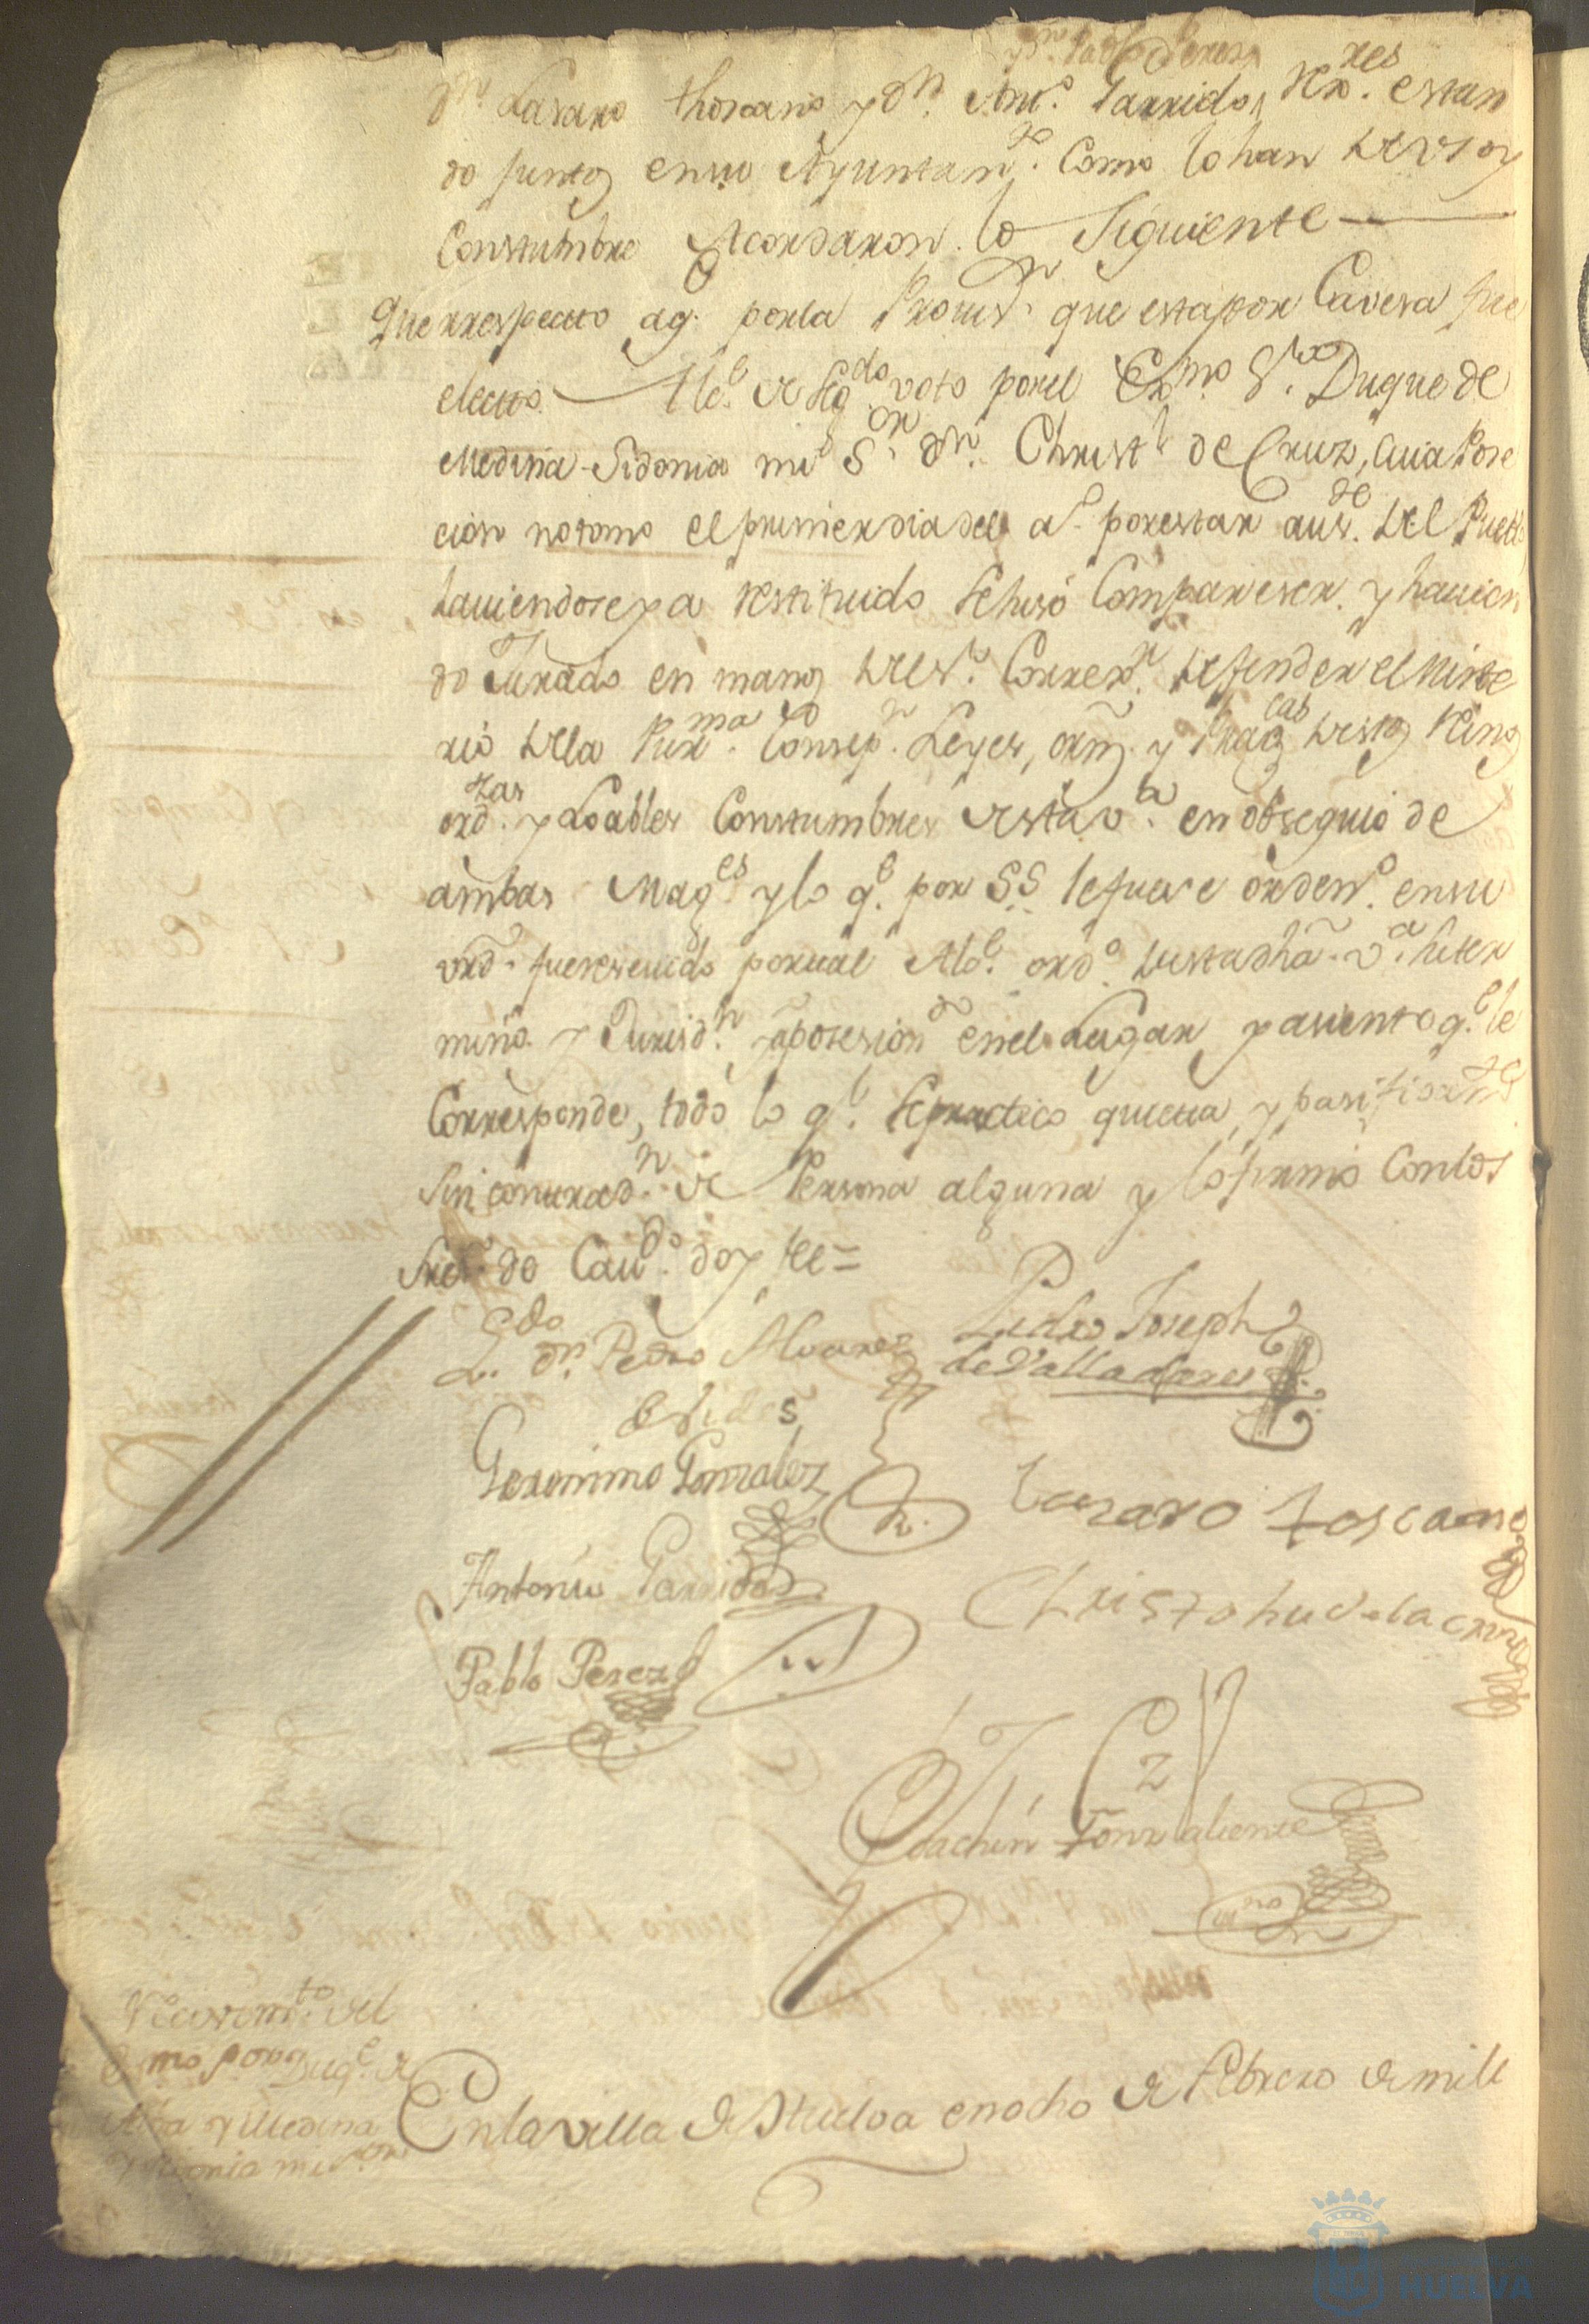 y Dn. Pablo Perez
Dn. Lasaro thoscano y Dn. Anto. Garrido, Rexres. estan
do juntos en su Ayuntamto. Como lo han de vso y
Constumbre Acordaron lo Siguiente
Que rrespecto aq. por la Provisn. que esta por Cavesa fue
electo Alce. de Segdo. voto por el Exmo. Sr. Duque de
Medina-Sidonia mi Sor. Dn. Christl. de Cruz, cuia Pose
cion no tomo el primer dia del año por estar ausde. del Pueblo
hauiendose ya restituido se hiso Compareser. y hauien
do Jurado en manos del Sr. Correxr. defender el Miste
rio de la Purma. Consepn. Leyes, orns. y Pragcas de estos Reinos
ordzas. y Loables Constumbres de sta va. en obsequio de
ambas Mages. y lo qe. por SS. le fuese ordeno. en su
vrd. fue resevido por tal Alce. ordo. de esta dha. va. su ter
mino y Jurisdn. y aposesiondo en el Lugar y asiento qe. le
Corresponde, todo lo qe. se practico quieta, y pasificamte.
sin contradn. de Persona alguna y lo firmo Con los
Sres. de Cavdo. doy fee=
Ldo. Dn. Pedro Alvarez
Pedro Joseph
de Valladares
Geronimo Gonzalez
Lazaro toscano
Antonio Garrido
Christobal de la cruz
Pablo Perez
Joachin Fonzaliente
Recivimto. del
Exmo. Sor. Duqe. de
Alva y Medina
Sidonia mi Sor.
En la villa de Huelva en ocho de Febrero de mill
HUELVA